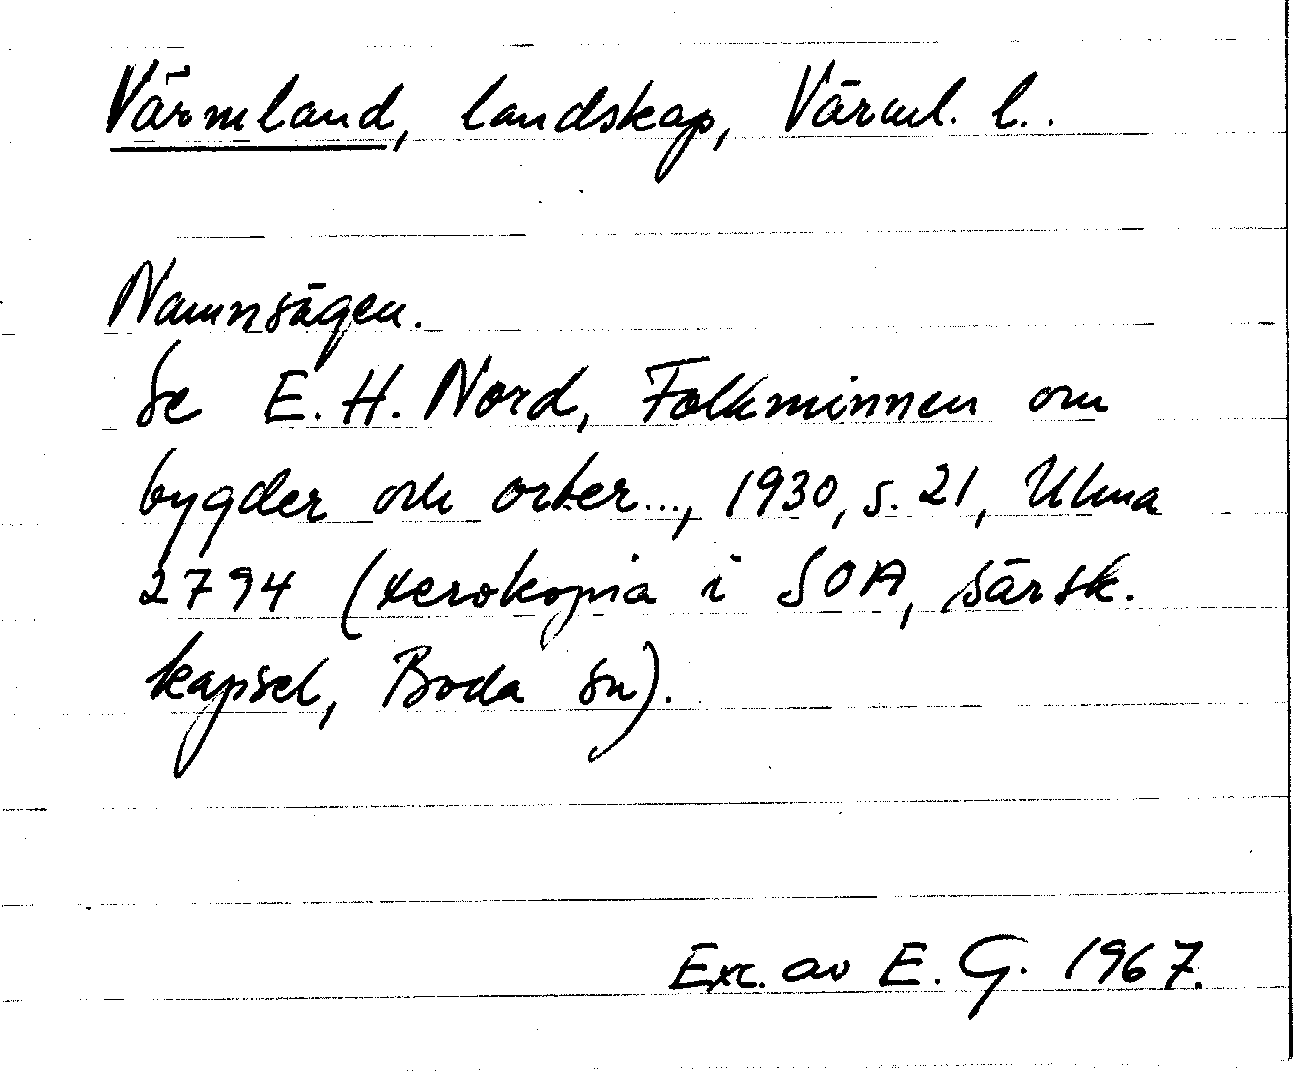 Värmland, landskap, Värml. l..
Namnsägen.
Se E. H. Nord, Folkminnen om
bygder och orter..., 1930, s. 21, Ulma
2794 (xerokopia i SOA, särsk.
kapsel, Boda sn).
Exc. av E. G. 1967.